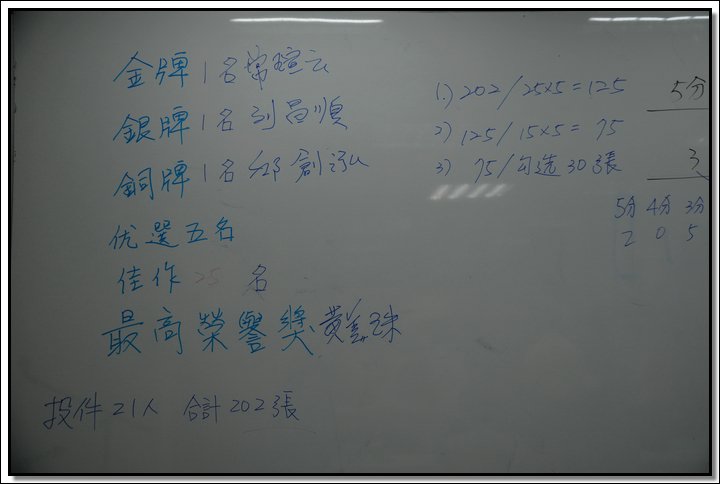 金牌 1名 常瑄云
銀牌 1名 刘昌順
銅牌 1名 邱創泓
优選五名
佳作 25 名
最高榮譽奬 黃美珠
投件21人 合計202張
1.) 202/25×5=125
2) 125/15×5= 75
3) 75/勾选30張
5分
3
5分 4分 3分
2 0 5